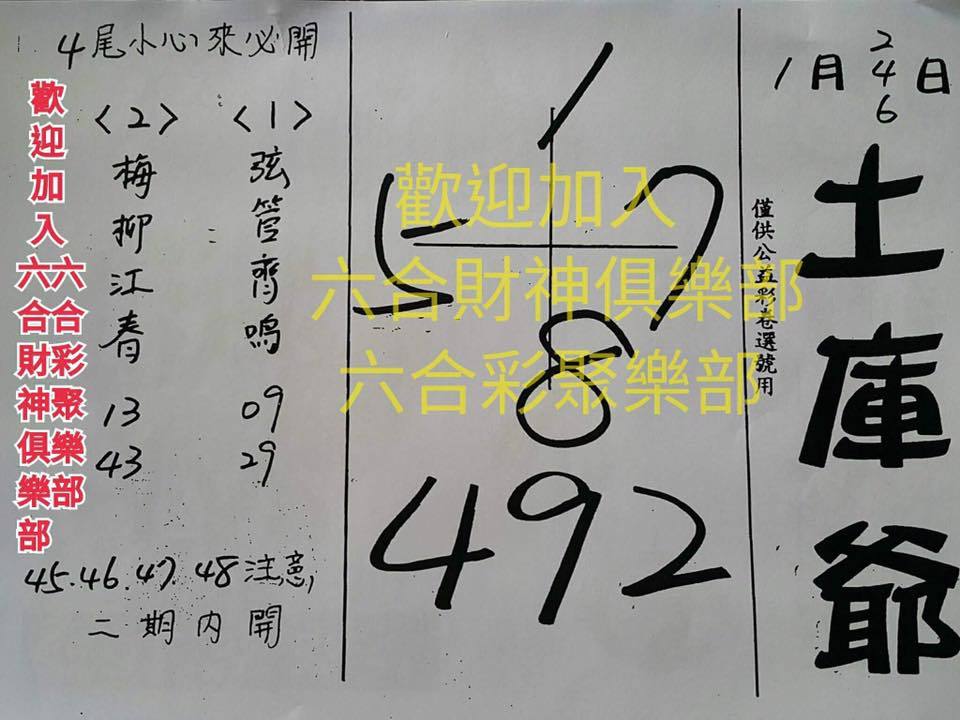 1月 2 4 6 日
土庫爺
僅供公益彩卷選號用
1
5 7
8
492
4尾小心來必開
〈1〉
弦管齊鳴
09
29
〈2〉
梅柳江春
13
43
45.46.47.48注意
二期內開
歡迎加入
六合財神俱樂部
六合彩聚樂部
歡迎加入
六合彩聚樂部
六合財神俱樂部